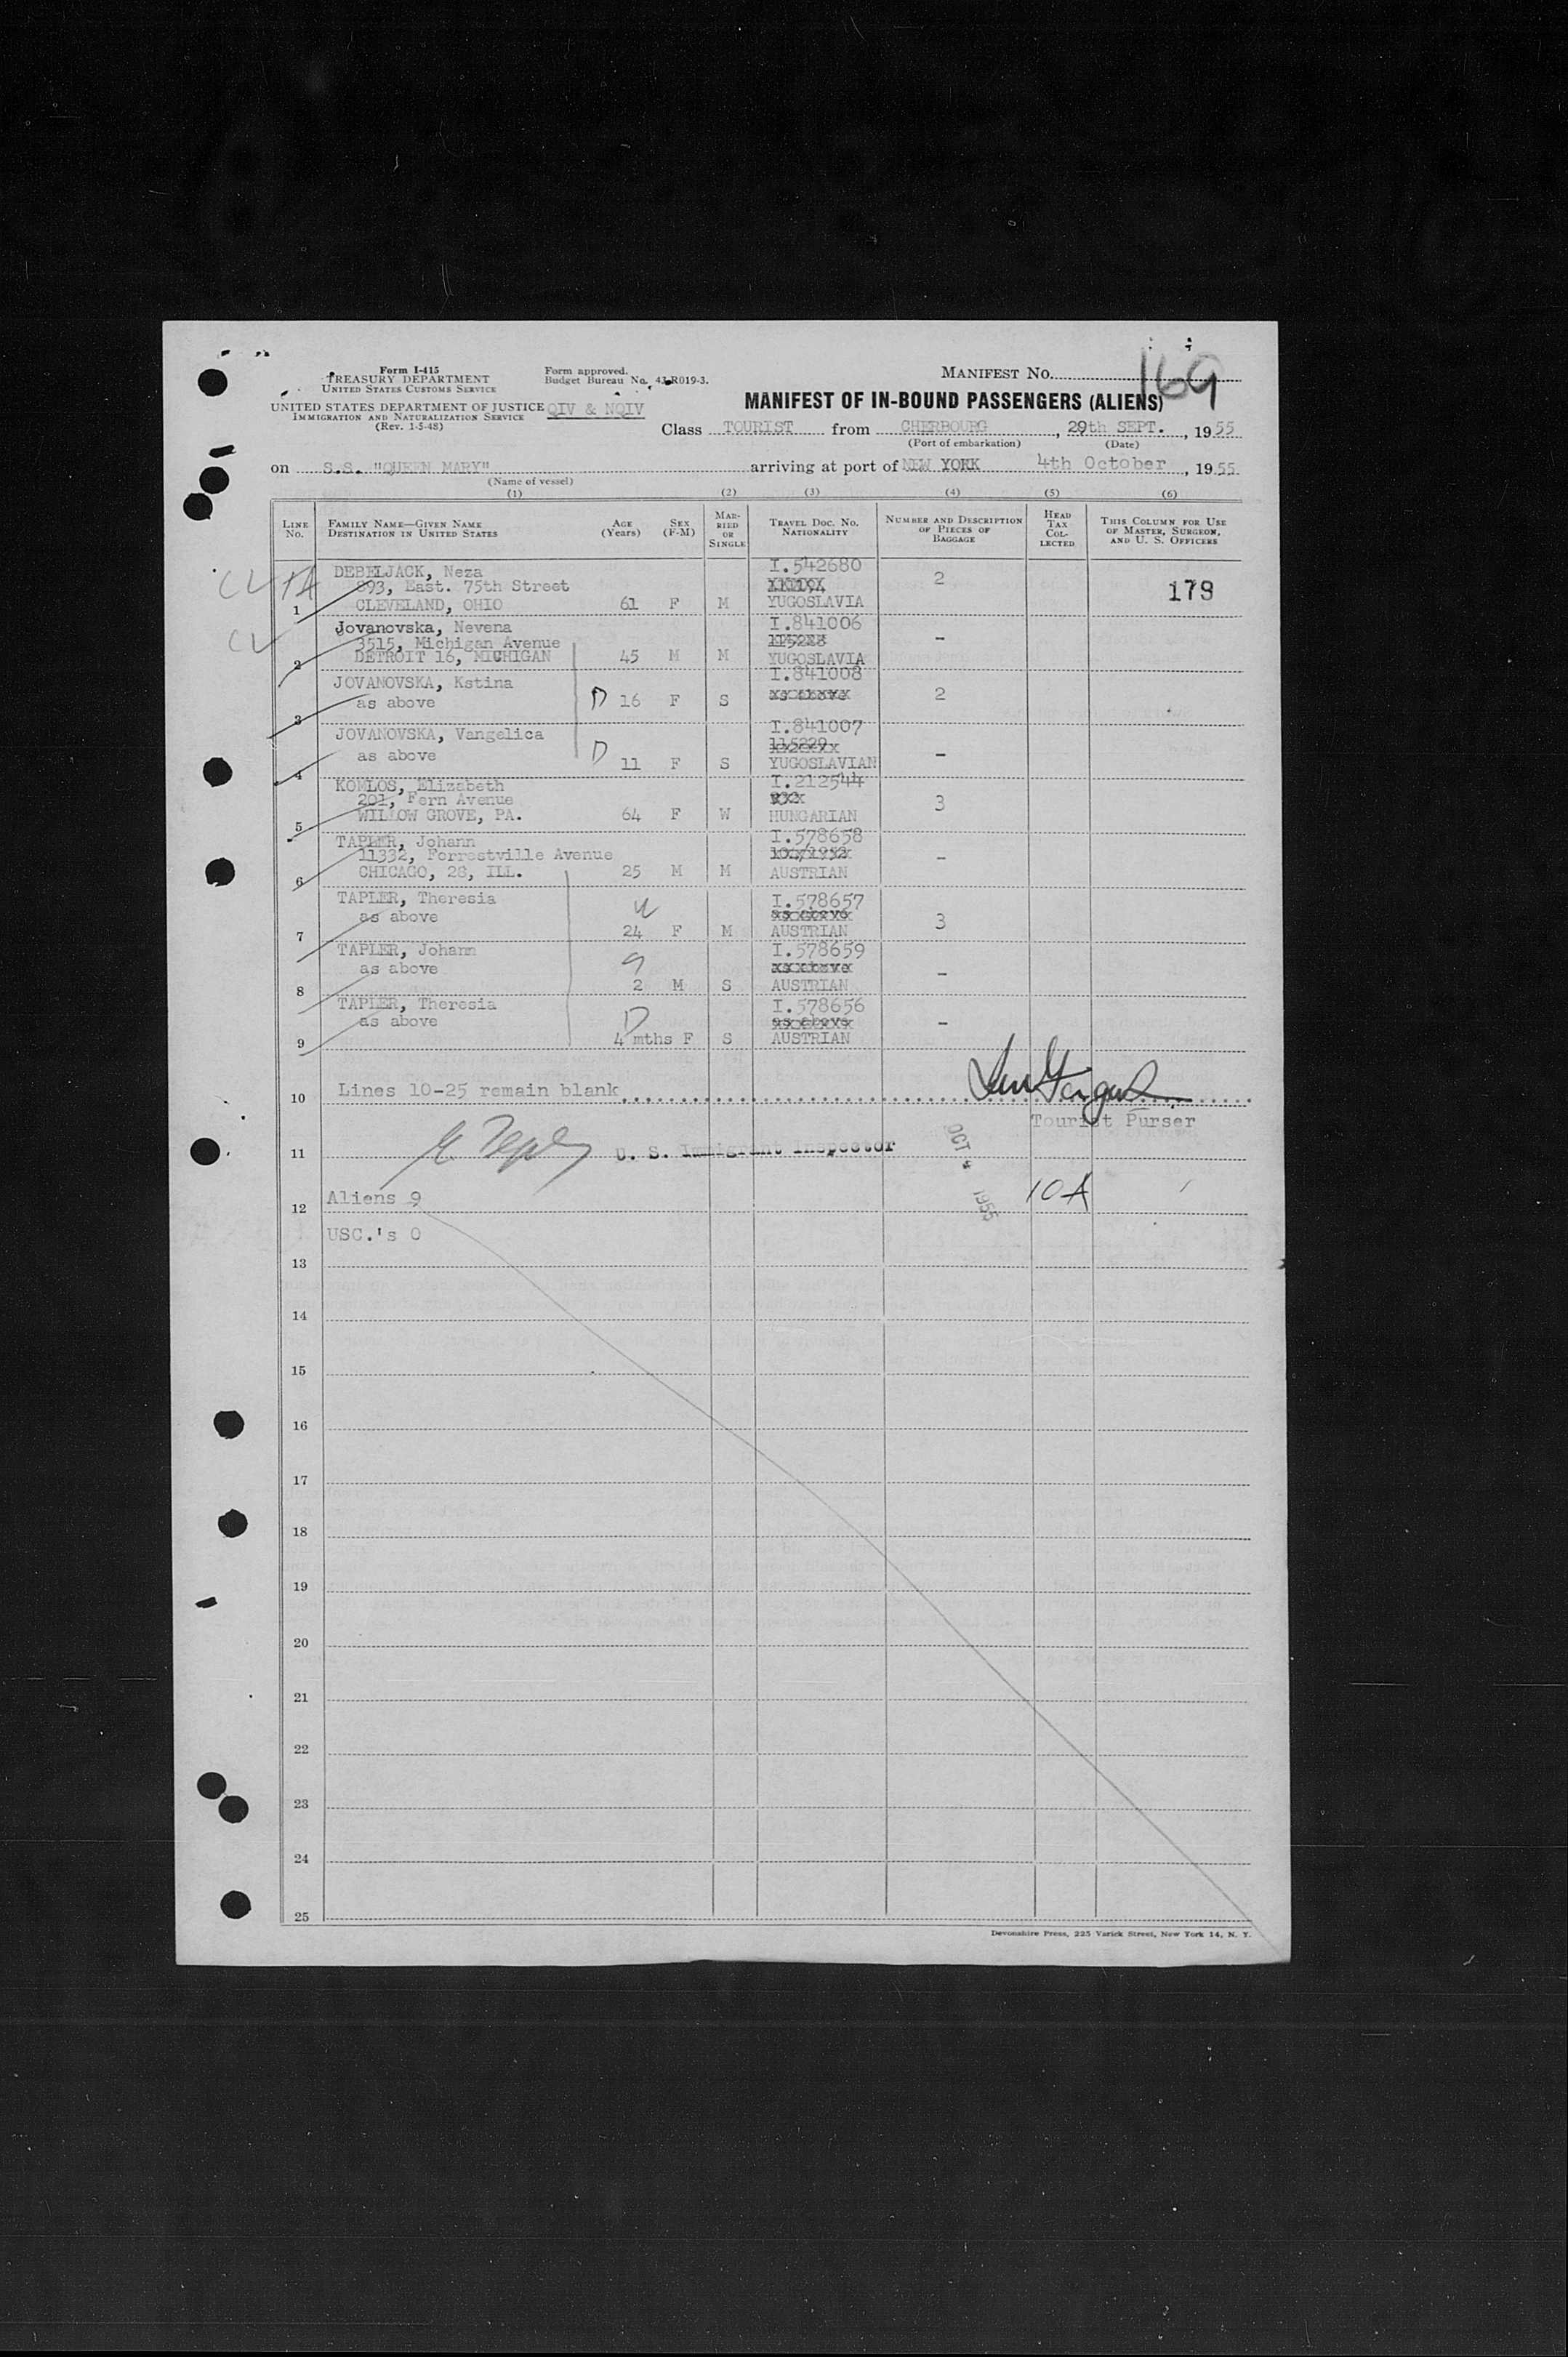 Form I-415
TREASURY DEPARTMENT
UNITED STATES CUSTOMS SERVICE
Form approved.
Budget Bureau No. 43-R019-3.
MANIFEST No. 169
UNITED STATES DEPARTMENT OF JUSTICE
IMMIGRATION AND NATURALIZATION SERVICE
(Rev. 1-5-48)
QIV & NQIV
MANIFEST OF IN-BOUND PASSENGERS (ALIENS)
Class TOURIST from CHERBOURG, 29th SEPT., 1955
(Port of embarkation) (Date)
on S.S. "QUEEN MARY" arriving at port of NEW YORK 4th October, 1955
(Name of vessel)
(1) (2) (3) (4) (5) (6)
LINE No. FAMILY NAME—GIVEN NAME DESTINATION IN UNITED STATES AGE (Years) SEX (F-M) MARRIED OR SINGLE TRAVEL DOC. No. NATIONALITY NUMBER AND DESCRIPTION OF PIECES OF BAGGAGE HEAD TAX COLLECTED THIS COLUMN FOR USE OF MASTER, SURGEON, AND U. S. OFFICERS
DEBELJACK, Neza I.542680
893, East. 75th Street 2 179
1 CLEVELAND, OHIO 61 F M YUGOSLAVIA
Jovanovska, Nevena I.841006
3515, Michigan Avenue 115228 -
2 DETROIT 16, MICHIGAN 45 M M YUGOSLAVIA
JOVANOVSKA, Kstina I.841008
3 as above D 16 F S as above 2
JOVANOVSKA, Vangelica I.841007
as above D 115229 -
4 11 F S YUGOSLAVIAN
KOMLOS, Elizabeth I.212544
201, Fern Avenue 3
5 WILLOW GROVE, PA. 64 F W HUNGARIAN
TAPLER, Johann I.578658
11332, Forrestville Avenue -
6 CHICAGO, 28, ILL. 25 M M AUSTRIAN
TAPLER, Theresia I.578657
as above as above 3
7 24 F M AUSTRIAN
TAPLER, Johann I.578659
as above as above -
8 2 M S AUSTRIAN
TAPLER, Theresia I.578656
as above D as above -
9 4 mths F S AUSTRIAN
10 Lines 10-25 remain blank
Tourist Purser
11 U. S. Immigrant Inspector OCT 4 1955
12 Aliens 9 10A
USC.'s 0
13
14
15
16
17
18
19
20
21
22
23
24
25
Devonshire Press, 225 Varick Street, New York 14, N. Y.